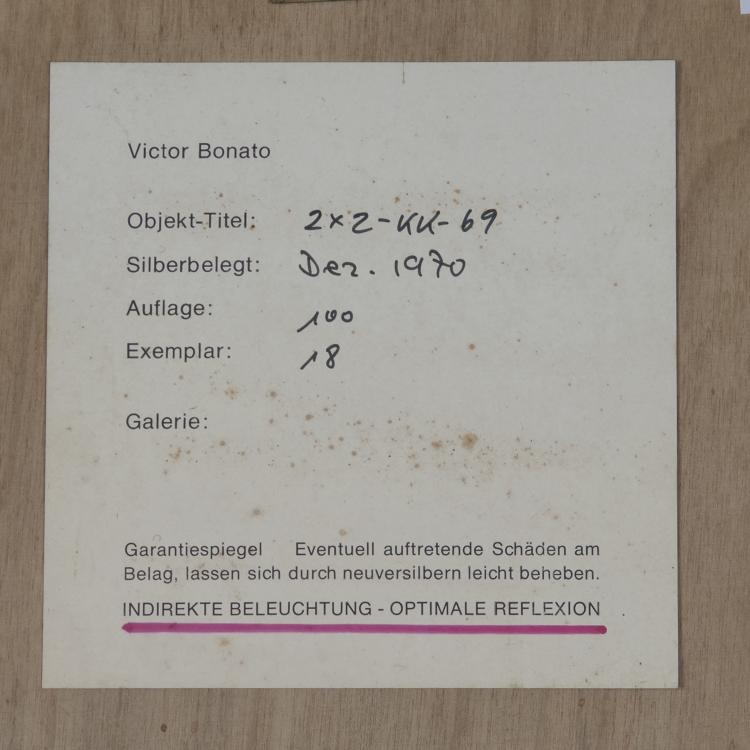 Victor Bonato
Objekt-Titel: 2x2-KK-69
Silberbelegt: Dez. 1970
Auflage: 100
Exemplar: 18
Galerie:
Garantiespiegel Eventuell auftretende Schäden am
Belag, lassen sich durch neuversilbern leicht beheben.
INDIREKTE BELEUCHTUNG - OPTIMALE REFLEXION